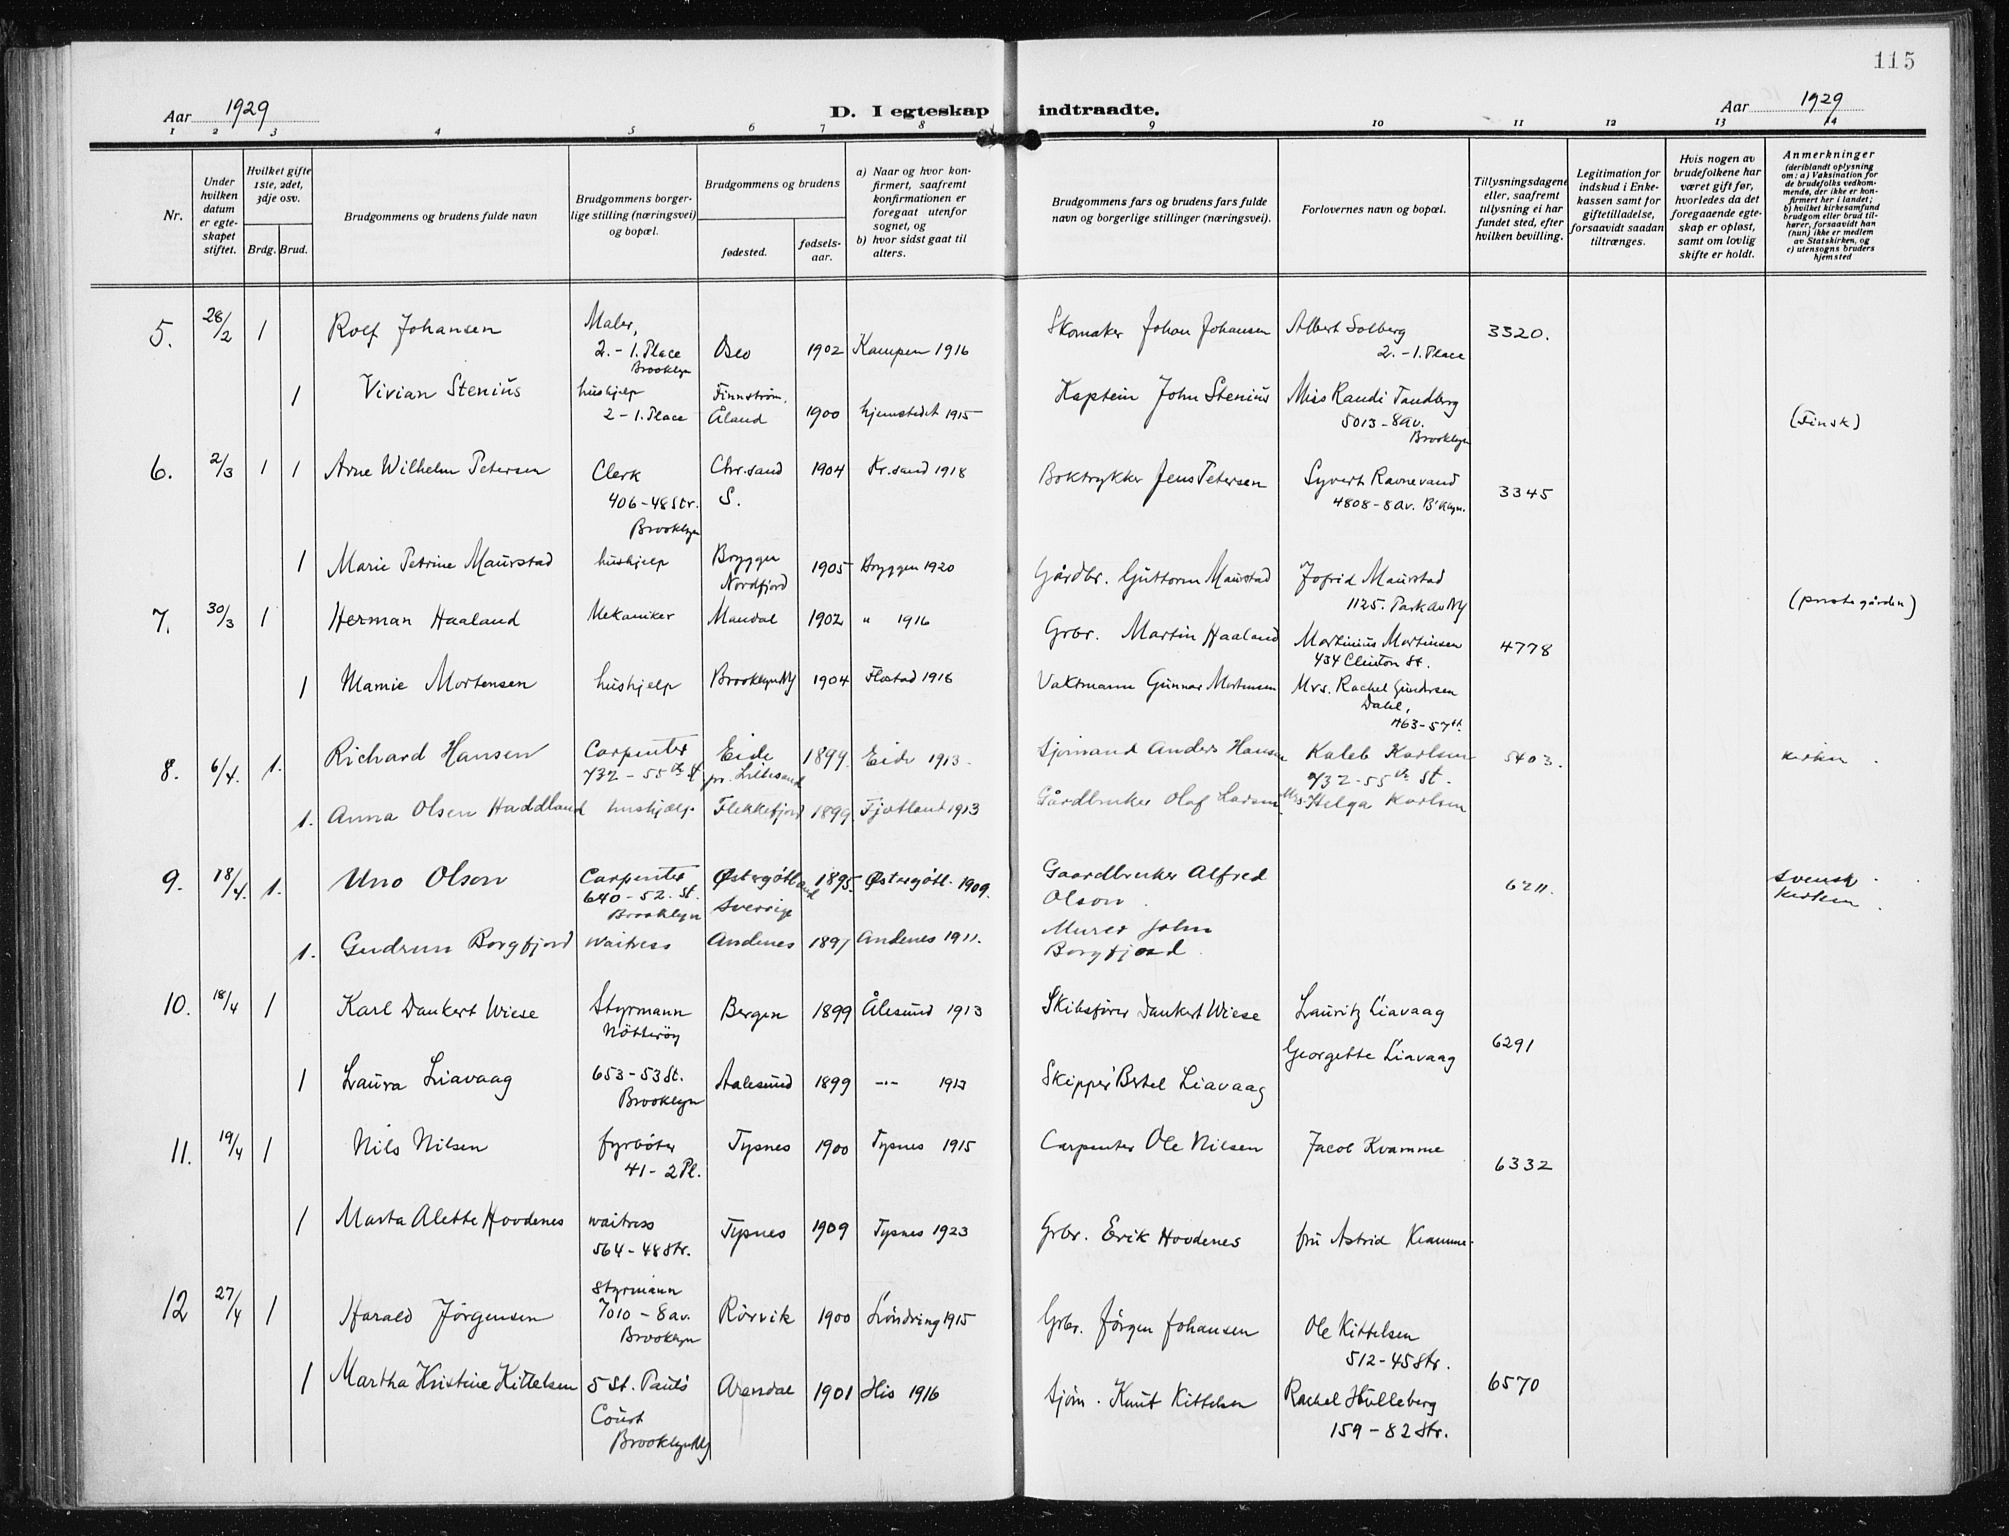 115
Aar 1929
D. I egteskap indtraadte.
Aar 1929
1 2 3 4 5 6 7 8 9 10 11 12 13 14
Nr.
Under hvilken datum er egte-skapet stiftet.
Hvilket gifte 1ste, 2det, 3dje osv.
Brdg. Brud.
Brudgommens og brudens fulde navn
Brudgommens borger-lige stilling (næringsvei) og bopæl.
Brudgommens og brudens
fødested.
fødsels-aar.
a) Naar og hvor kon-firmert, saafremt konfirmationen er foregaat utenfor sognet, og
b) hvor sidst gaat til alters.
Brudgommens fars og brudens fars fulde navn og borgerlige stillinger (næringsvei).
Forlovernes navn og bopæl.
Tillysningsdagene eller, saafremt tillysning ei har fundet sted, efter hvilken bevilling.
Legitimation for indskud i Enke-kassen samt for giftetilladelse, forsaavidt saadan tiltrænges.
Hvis nogen av brudefolkene har været gift før, hvorledes da det foregaaende egte-skap er opløst, samt om lovlig skifte er holdt.
Anmerkninger
(deriblandt oplysning om: a) Vaksination for de brudefolks vedkom-mende, der ikke er kon-firmert her i landet; b) hvilket kirkesamfund brudgom eller brud til-hører, forsaavidt han (hun) ikke er medlem av Statskirken, og c) utensogns bruders hjemsted
5. 28/2 1 Rolf Johansen Maler, 2.-1. Place Brooklyn Oslo 1902 Kampen 1916 Skomaker Johan Johansen Albert Solberg 2.-1. Place 3320.
1 Vivian Stenius hushjelp 2-1. Place Finnström, Åland 1900 hjemstedet 1915 Kaptein John Stenius Miss Randi Tandberg 5013-8av. Brooklyn (Finsk)
6. 2/3 1 1 Arne Wilhelm Petersen Clerk 406-48 Str. Brooklyn Chr.sand S. 1904 Kr.sand 1918 Boktrykker Jens Petersen Syvert Ravnevand 4808-8av. B'klyn. 3345
1 Marie Petrine Maurstad hushjelp Bryggen Nordfjord 1905 Bryggen 1920 Gårdbr. Guttorm Maurstad Jofrid Maurstad 1125. Park av NY
7. 30/3 1 Herman Haaland Mekaniker Mandal 1902 " 1916 Grbr. Martin Haaland Martinius Mortensen 434 Clinton St. 4778 (prestegården)
1 Mamie Mortensen hushjelp Brooklyn NY 1904 Flostad 1916 Vaktmann Gunnar Mortensen Mrs. Rachel Gundersen Dahl, 763-57 st.
8. 6/4. 1. Richard Hansen Carpenter 732-55th St Eide pr. Lillesand 1899. Eide 1913. Sjømand Anders Hansen Kaleb Karlsen 732-55th St. 5403. kirken.
1. Anna Olsen Haddland hushjælp Flekkefjord 1899. Fjotland 1913 Gårdbruker Olaf Larsen. Mrs. Helga Karlsen
9. 18/4. 1. Uno Olson Carpenter 640-52. St. Brooklyn Østergötland Sverrige 1895. Østergötl. 1909. Gaardbruker Alfred Olson. 6211. Svensk kirken.
1. Gudrun Borgfjord waitress Andenes 1897 Andenes 1911. Murer John Borgfjord.
10. 18/4 1 Karl Dankert Wiese Styrmann Nötteröy Bergen 1899 Ålesund 1913 Skibsfører Dankert Wiese Lauritz Liavaag
1 Laura Liavaag 653-53 St. Brooklyn Aalesund 1899 -"- 1913 Skipper Bertel Liavaag Georgette Liavaag 6291
11. 19/4 1 Nils Nilsen fyrbøter 41-2 Pl. Tysnes 1900 Tysnes 1915 Carpenter Ole Nilsen Jacob Kvamme 6332
1 Marta Alette Hovdenes waitress 564-48 Str. Tysnes 1909 Tysnes 1923 Grbr. Erik Hovdenes fru Astrid Kvamme.
12 27/4 1 Harald Jørgensen Styrmann 7010-8av. Brooklyn Rörvik 1900 1915 Grbr. Jørgen Johansen Ole Kittelsen 512-45 Str.
1 Martha Kristine Kittelsen 5 St. Pauls Court Brooklyn NY Arendal 1901 His 1916 Sjøm. Knut Kittelsen Rachel Hulleberg 159-82 Str. 6570